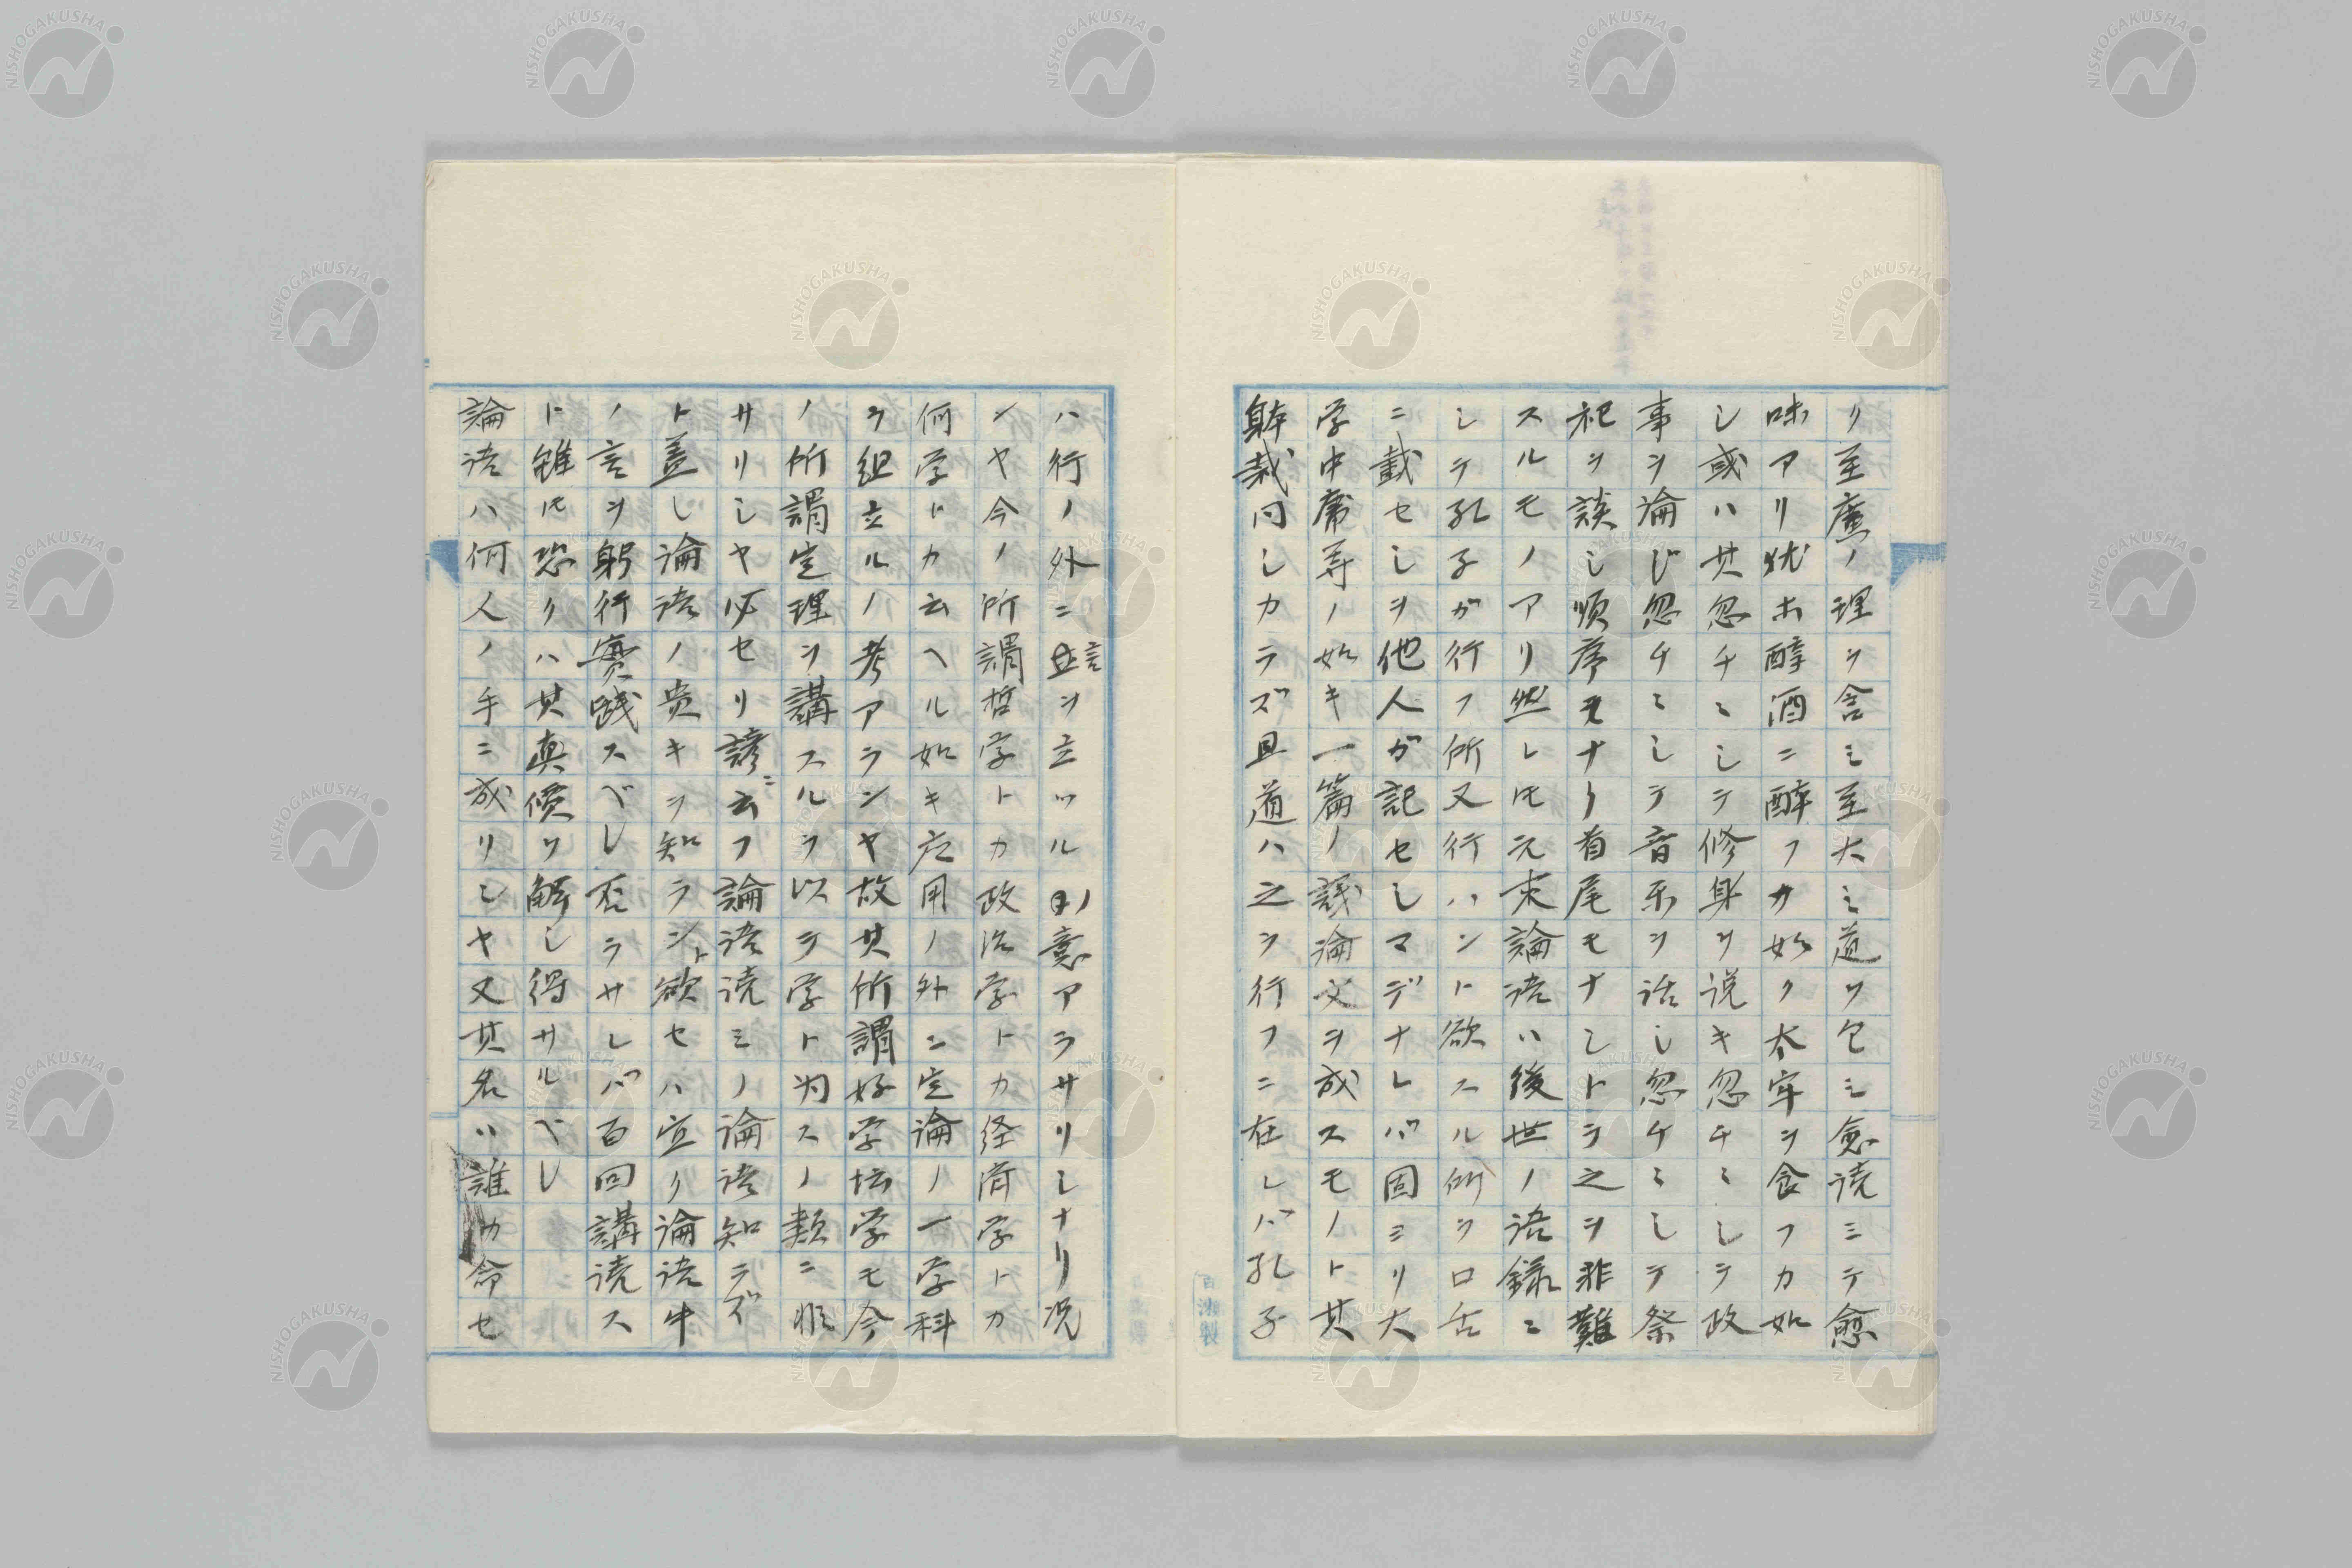 リ至廣ノ理ヲ含ミ至大ミ道ヲ包ミ愈読ミテ愈
味アリ犹ホ醇酒ニ酔フカ如ク太牢ヲ食フカ如
シ或ハ其忽チミシテ修身ヲ説キ忽チミシテ政
事ヲ論ジ忽チミシテ音楽ヲ話シ忽チミシテ祭
祀ヲ談シ順序モナク首尾モナシトテ之ヲ非難
スルモノアリ然レ𪜈元来論語ハ後世ノ語録ミ
シテ孔子ガ行フ所又行ハント欲スル所ヲ口舌
ニ載セシヲ他人ガ記セシマデナレバ固ヨリ大
学中庸等ノ如キ一篇ノ議論文ヲ成スモノト其
躰裁同シカラズ且道ハ之ヲ行フニ在レバ孔子
ハ行ノ外ニ言ヲ立ツルノ意アラサリシナリ況
ンヤ今ノ所謂哲学トカ政治学トカ経済学トカ
何学トカ云ヘル如キ応用ノ外ニ定論ノ一学科
ヲ組立ルノ考アランヤ故其所謂好学坛学モ今
ノ所謂定理ヲ講スルヲ以テ学ト為スノ類ニ非
サリシヤ必セリ諺ニ云フ論語読ミノ論語知ラズ
ト蓋し論語ノ貴キヲ知ラント欲セハ宜ク論語中
ノ言ヲ躬行實践スベシ否ラサレバ百回講読ス
ト雖𪜈恐クハ其真價ヲ解シ得サルベシ
論語ハ何人ノ手ニ成リシヤ又其名ハ誰カ命セ
NISHOGAKUSHA